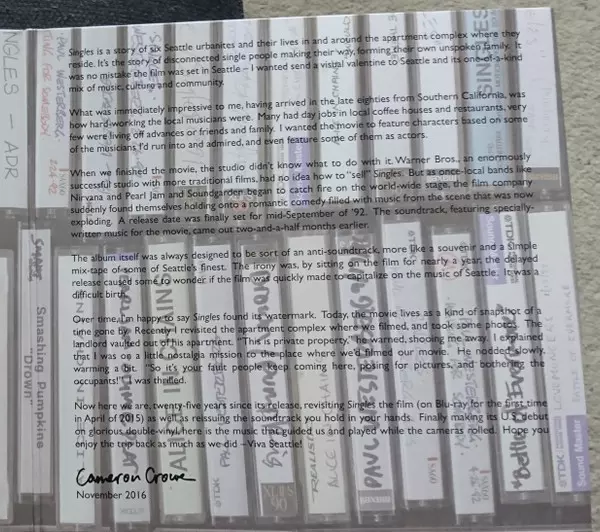 Singles is a story of six Seattle urbanites and their lives in and around the apartment complex where they
reside. It's the story of disconnected single people making their way, forming their own unspoken family. It
was no mistake the film was set in Seattle – I wanted send a visual valentine to Seattle and its one-of-a-kind
mix of music, culture and community.
What was immediately impressive to me, having arrived in the late eighties from Southern California, was
how hard-working the local musicians were. Many had day jobs in local coffee houses and restaurants, very
few were living off advances or friends and family. I wanted the movie to feature characters based on some
of the musicians I'd run into and admired, and even feature some of them as actors.
When we finished the movie, the studio didn't know what to do with it. Warner Bros., an enormously
successful studio with more traditional films, had no idea how to "sell" Singles. But as once-local bands like
Nirvana and Pearl Jam and Soundgarden began to catch fire on the world-wide stage, the film company
suddenly found themselves holding onto a romantic comedy filled with music from the scene that was now
exploding. A release date was finally set for mid-September of '92. The soundtrack, featuring specially-
written music for the movie, came out two-and-a-half months earlier.
The album itself was always designed to be sort of an anti-soundtrack, more like a souvenir and a simple
mix-tape of some of Seattle's finest. The irony was, by sitting on the film for nearly a year, the delayed
release caused some to wonder if the film was quickly made to capitalize on the music of Seattle. It was a
difficult birth.
Over time, I'm happy to say Singles found its watermark. Today, the movie lives as a kind of snapshot of a
time gone by. Recently I revisited the apartment complex where we filmed, and took some photos. The
landlord vaulted out of his apartment. "This is private property," he warned, shooing me away. I explained
that I was on a little nostalgia mission to the place where we'd filmed our movie. He nodded slowly,
warming a bit. "So it's your fault people keep coming here, posing for pictures, and bothering the
occupants!" I was thrilled.
Now here we are, twenty-five years since its release, revisiting Singles the film (on Blu-ray for the first time
in April of 2015) as well as reissuing the soundtrack you hold in your hands. Finally making its U.S. debut
on glorious double-vinyl, here is the music that guided us and played while the cameras rolled. Hope you
enjoy the trip back as much as we did – Viva Seattle!
Cameron Crowe
November 2016
NGLES — ADR
PAUL WESTERBERG
Smashing Pumpkins
"Drown"
TDK
Sound Master